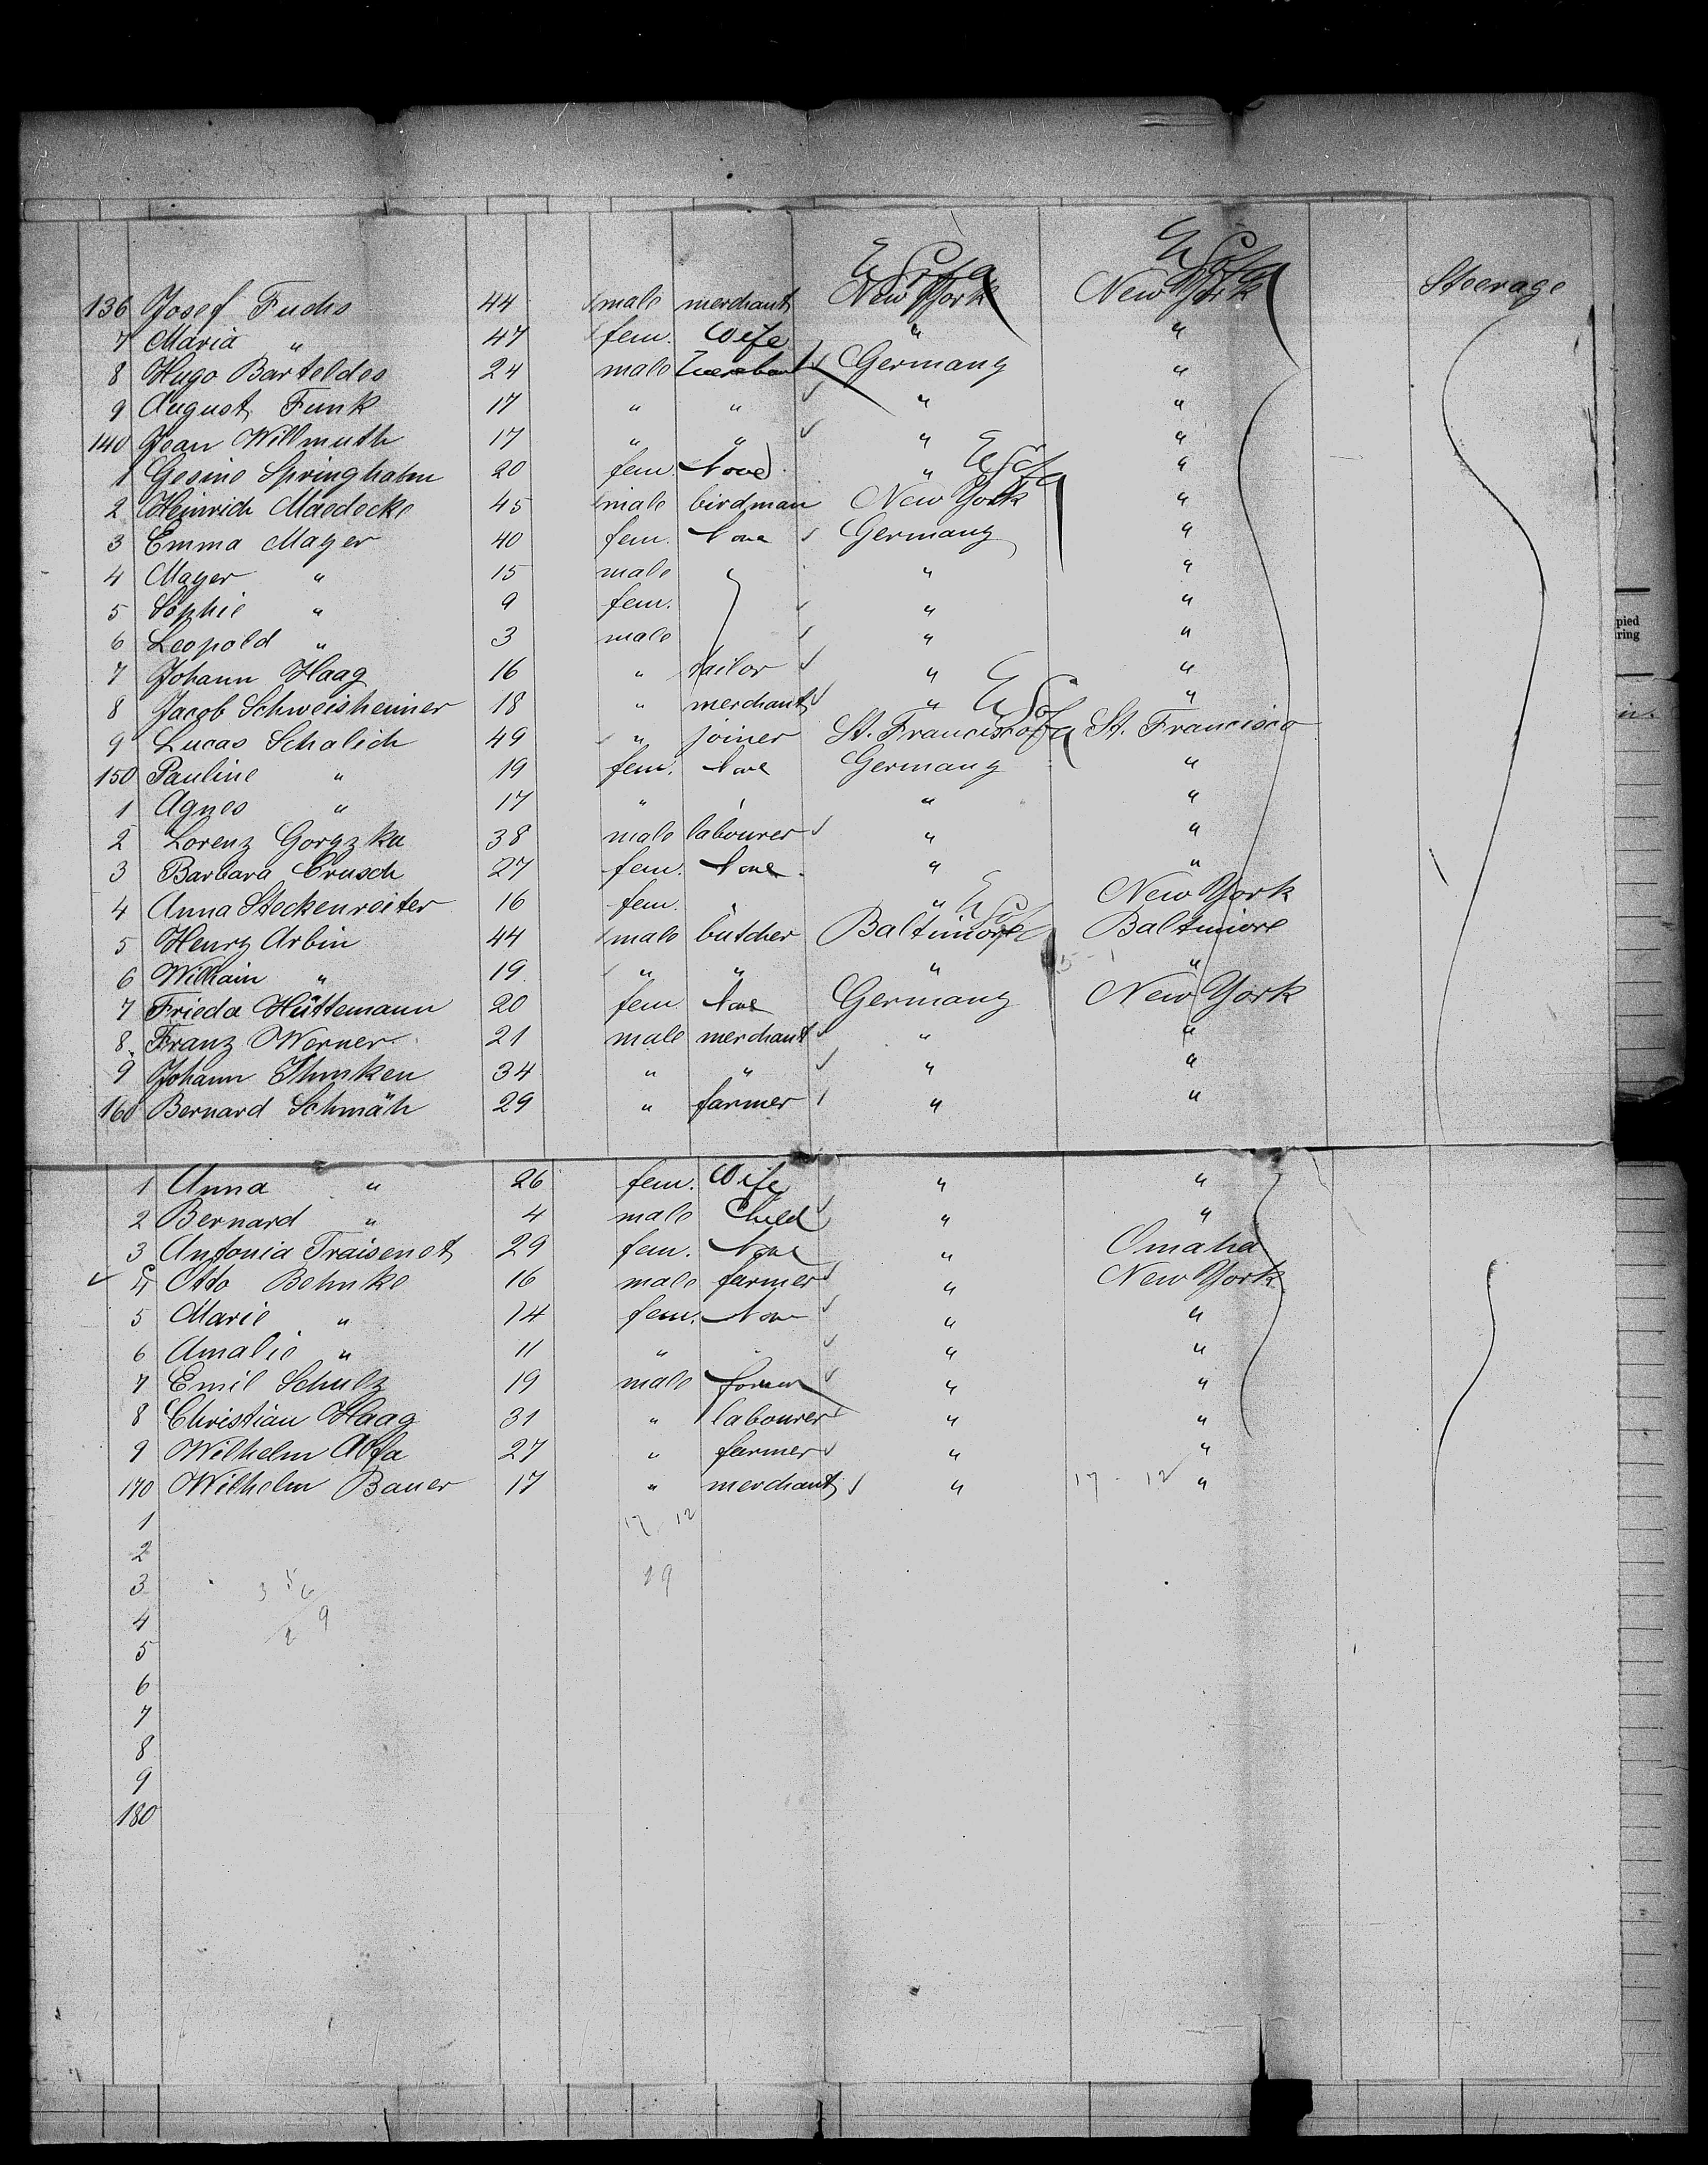 136 Josef Fuchs 44 male merchant New York New York Steerage
7 Maria " 47 fem. Wife " "
8 Hugo Barteldes 24 male merchant Germany "
9 August Funk 17 " " " "
140 Jean Willmuth 17 " " " "
1 Gesine Springhalm 20 fem. None " "
2 Heinrich Maedecke 45 male birdman New York "
3 Emma Mayer 40 fem. None Germany "
4 Mayer " 15 male " " "
5 Sophie " 9 fem. " "
6 Leopold " 3 male " "
7 Johann Haag 16 " tailor " "
8 Jacob Schweisheimer 18 " merchant " "
9 Lucas Schalich 49 " joiner St. Francisco St. Francisco
150 Pauline " 19 fem. None Germany "
1 Agnes " 17 " " " "
2 Lorenz Gorazka 38 male labourer " "
3 Barbara Crusch 27 fem. None " "
4 Anna Steckenreiter 16 fem. " " New York
5 Henry Arbin 44 male butcher Baltimore Baltimore
6 William " 19 " " " "
7 Frieda Hüttemann 20 fem. None Germany New York
8 Franz Werner 21 male merchant " "
9 Johann 34 " " " "
160 Bernard Schmäh 29 " farmer " "
1 Anna " 26 fem. Wife " "
2 Bernard " 4 male Child " "
3 Antonia Traisenet 29 fem. None " Omaha
4 Otto Behnke 16 male farmer " New York
5 Marie " 14 fem. None " "
6 Amalie " 11 " " " "
7 Emil Schulz 19 male farmer " "
8 Christian Haag 31 " labourer " "
9 Wilhelm Abfa 27 " farmer " "
170 Wilhelm Bauer 17 " merchant " 17 - 12 "
1 17 12
2
3 19
4
5
6
7
8
9
180